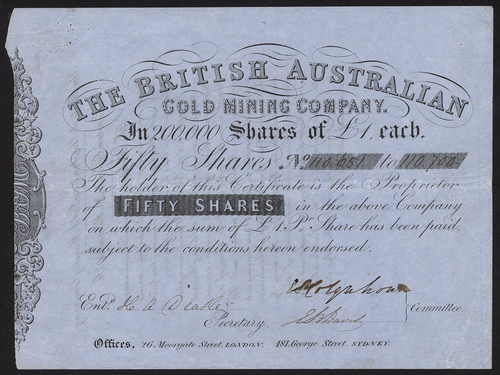 THE BRITISH AUSTRALIAN
GOLD MINING COMPANY.
In 200,000 Shares of £1, each.
Fifty Shares No. 110,651 to 110,700
The holder of this Certificate is the Proprietor
of FIFTY SHARES in the above Company
on which the sum of £1 Pr. Share has been paid,
subject to the conditions hereon endorsed.
Entd. H. A.
Secretary.
Committee.
Offices, 26, Moorgate Street, LONDON. 481, George Street, SYDNEY.